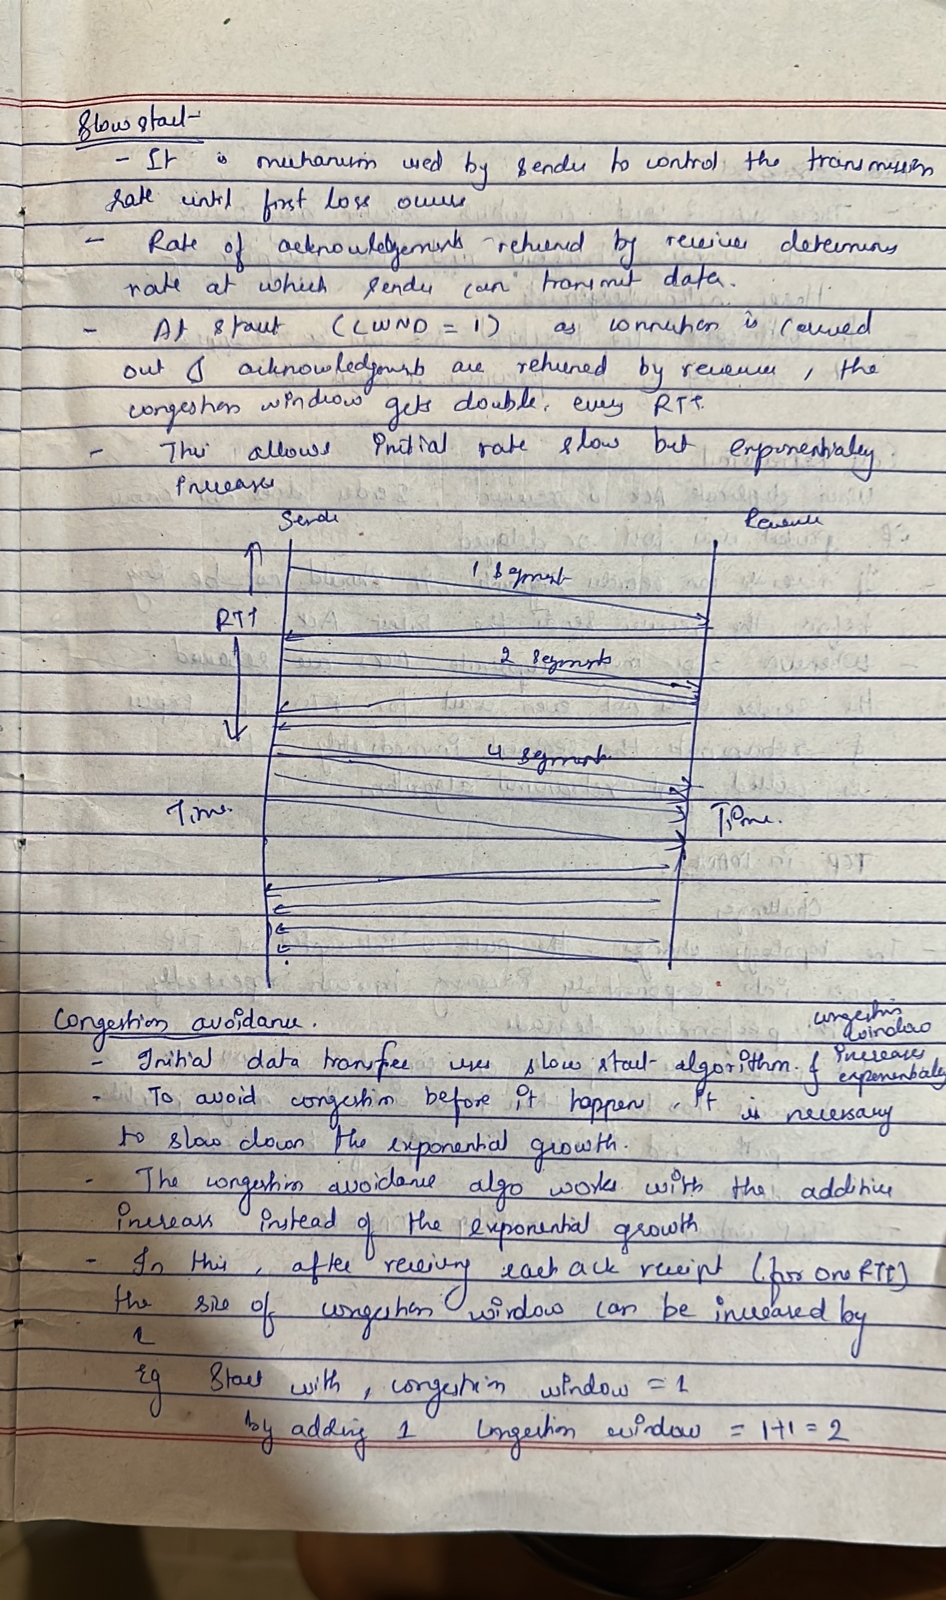 Slow start-
- It is mechanism used by sender to control the transmission
rate until first loss occurs
- Rate of acknowledgements returned by receiver determines
rate at which sender can transmit data.
- At start (CWND = 1) as connection is carried
out & acknowledgments are returned by receiver, the
congestion window gets double, every RTT.
- This allows initial rate slow but exponentialy
increase
Sender Receiver
1 segment
RTT
2 segments
4 segments
Time. Time.
Congestion avoidance.
- Initial data transfer uses slow start algorithm. & congestion window increases exponentialy
- To avoid congestion before it happen, it is necessary
to slow down the exponential growth.
- The congestion avoidance algo works with the additive
increase instead of the exponential growth
- In this, after receiving each ack receipt (for one RTT)
the size of congestion window can be increased by
1
Eg Start with, congestion window = 1
by adding 1 Congestion window = 1+1 = 2